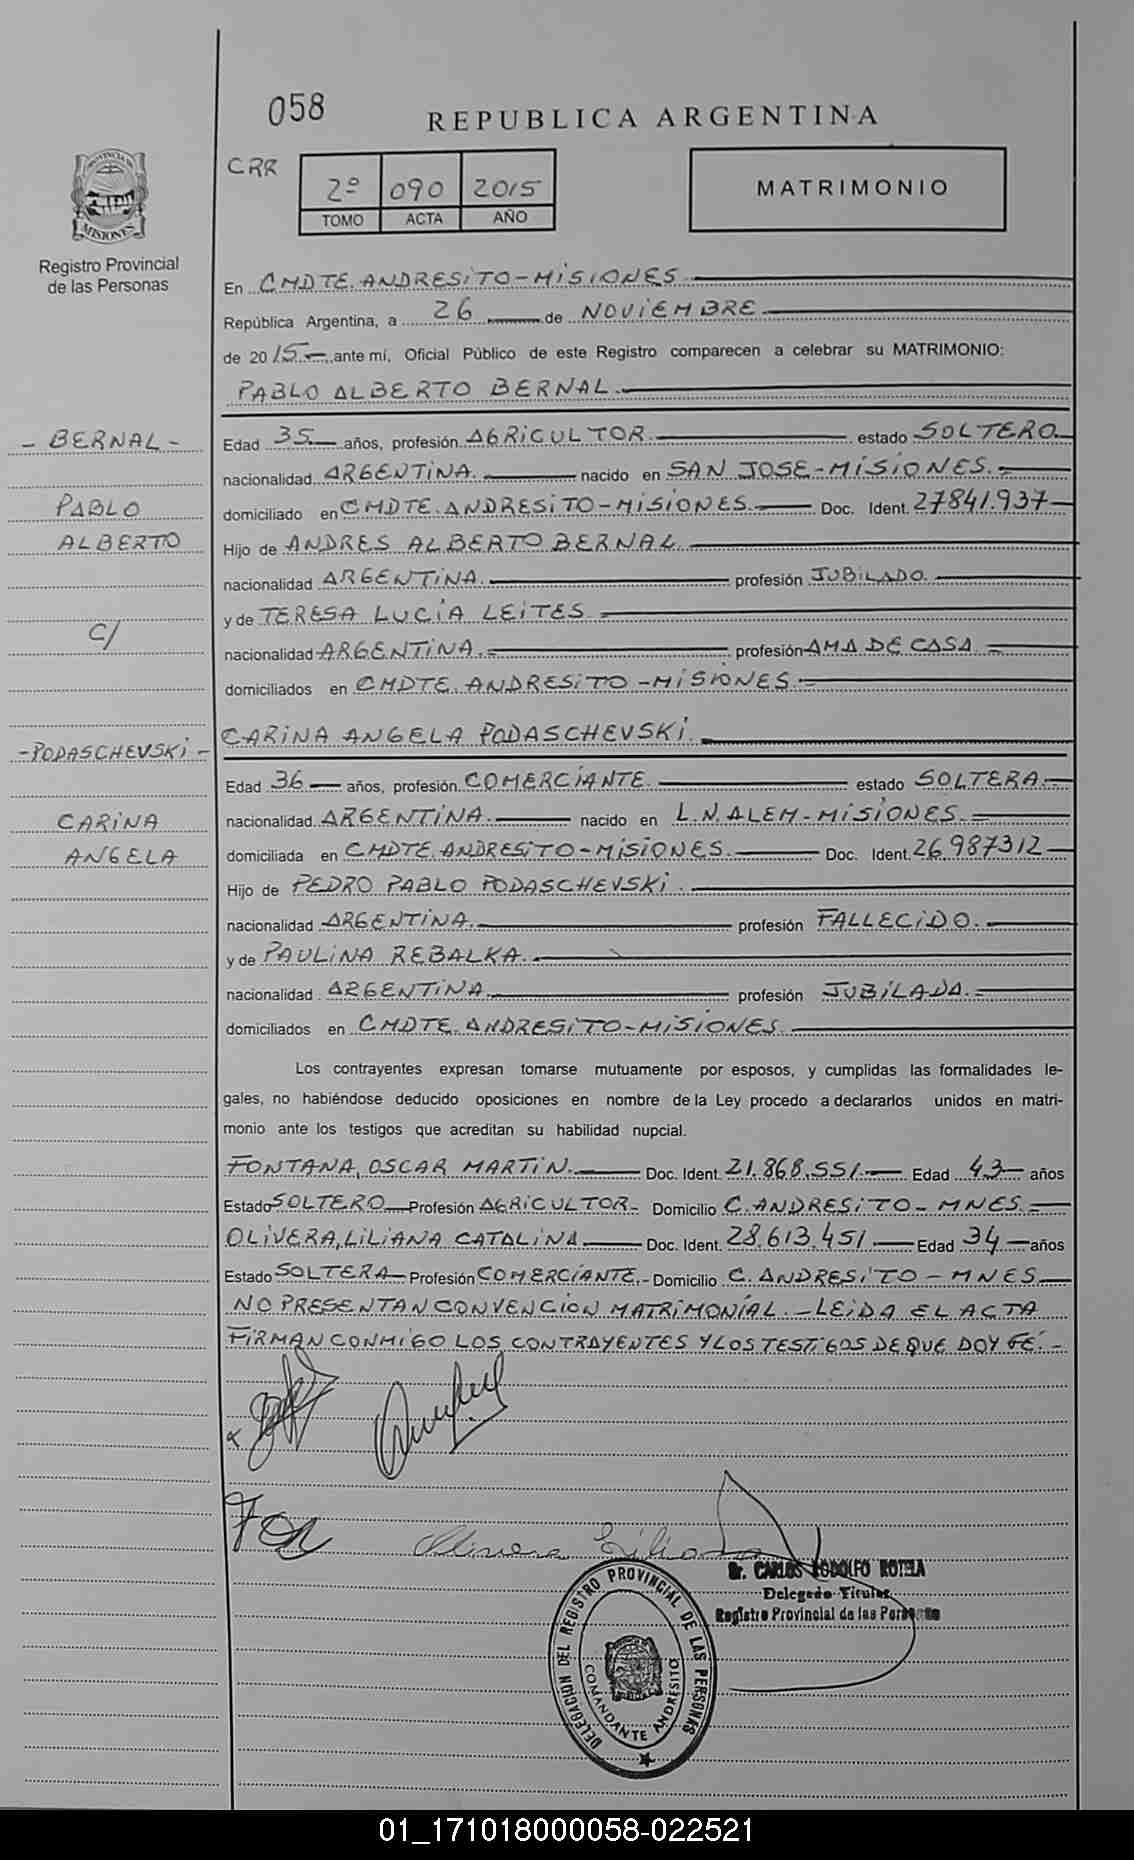 058
REPUBLICA ARGENTINA
CRR
2º 090 2015
TOMO ACTA AÑO
MATRIMONIO
PROVINCIA DE
MISIONES
Registro Provincial
de las Personas
En CMDTE. ANDRESITO-MISIONES
República Argentina, a 26 de NOVIEMBRE
de 2015.- ante mí, Oficial Público de este Registro comparecen a celebrar su MATRIMONIO:
PABLO ALBERTO BERNAL.
- BERNAL -
PABLO
ALBERTO
C/
-PODASCHEVSKI-
CARINA
ANGELA
Edad 35 años, profesión AGRICULTOR. estado SOLTERO.
nacionalidad ARGENTINA. nacido en SAN JOSE-MISIONES.
domiciliado en CMDTE. ANDRESITO-MISIONES. Doc. Ident. 27841.937
Hijo de ANDRES ALBERTO BERNAL.
nacionalidad ARGENTINA. profesión JUBILADO.
y de TERESA LUCÍA LEITES
nacionalidad ARGENTINA. profesión AMA DE CASA.
domiciliados en CMDTE. ANDRESITO-MISIONES.
CARINA ANGELA PODASCHEVSKI.
Edad 36 años, profesión COMERCIANTE. estado SOLTERA.
nacionalidad ARGENTINA. nacido en L.N.ALEM-MISIONES.
domiciliada en CMDTE. ANDRESITO-MISIONES. Doc. Ident. 26.987312
Hijo de PEDRO PABLO PODASCHEVSKI.
nacionalidad ARGENTINA. profesión FALLECIDO.
y de PAULINA REBALKA.
nacionalidad ARGENTINA. profesión JUBILADA.
domiciliados en CMDTE. ANDRESITO-MISIONES.
Los contrayentes expresan tomarse mutuamente por esposos, y cumplidas las formalidades le-
gales, no habiéndose deducido oposiciones en nombre de la Ley procedo a declararlos unidos en matri-
monio ante los testigos que acreditan su habilidad nupcial.
FONTANA, OSCAR MARTIN. Doc. Ident. 21.868.551. Edad 43 años
Estado SOLTERO Profesión AGRICULTOR- Domicilio C. ANDRESITO-MNES.
OLIVERA, LILIANA CATALINA Doc. Ident. 28.613.451 Edad 34 años
Estado SOLTERA Profesión COMERCIANTE.- Domicilio C. ANDRESITO-MNES
NO PRESENTAN CONVENCION MATRIMONIAL.-LEIDA EL ACTA
FIRMAN CONMIGO LOS CONTRAYENTES Y LOS TESTIGOS DE QUE DOY FÉ.-
Olivera Liliana
Sr. CARLOS RODOLFO ROTELA
Delegado Titular
Registro Provincial de las Personas
DELEGACION DEL REGISTRO PROVINCIAL DE LAS PERSONAS
COMANDANTE ANDRESITO
01_171018000058-022521